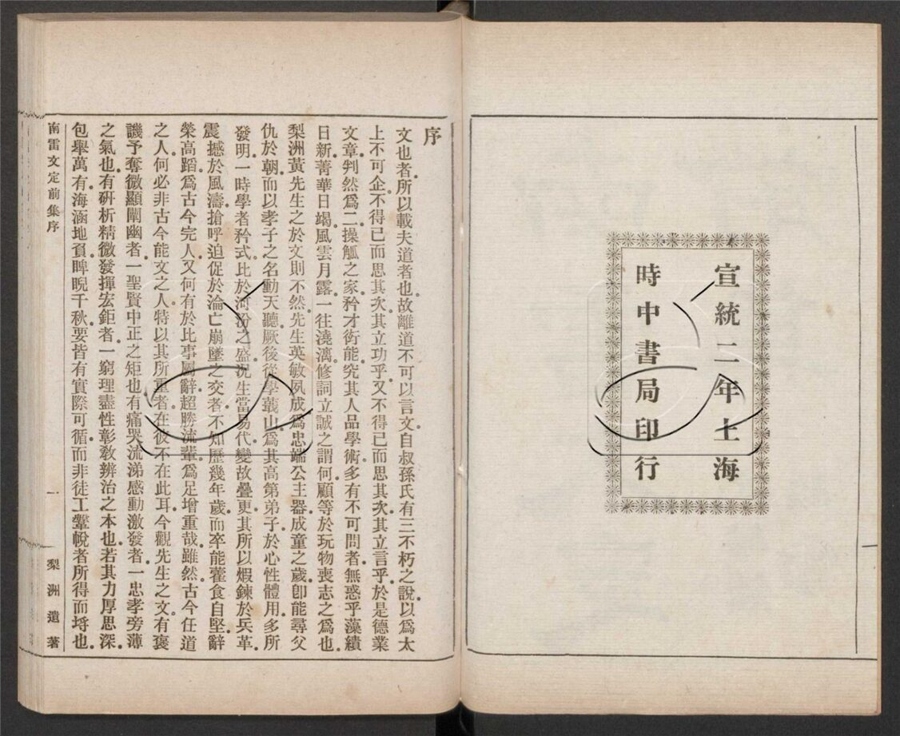 宣統二年上海
時中書局印行
序
文也者所以載夫道者也故離道不可以言文自叔孫氏有三不朽之說以爲太
上不可企不得已而思其次其立功乎又不得已而思其次其立言乎於是德業
文章判然爲二操觚之家矜才衒能究其人品學術多有不可問者無惑乎藻繢
日新菁華日竭風雲月露一往澆漓修詞立誠之謂何顧等於玩物喪志之爲也
梨洲黃先生之於文則不然先生英敏夙成爲忠端公主器成童之歲卽能尋父
仇於朝而以孝子之名動天聽厥後從學蕺山爲其高第弟子於心性體用多所
發明一時學者矜式比於河汾之盛況生當易代變故疊更其所以煆鍊於兵革
震撼於風濤搶呼迫促於淪亡崩墜之交者不知歷幾年歲而卒能藿食自堅辭
榮高蹈爲古今完人又何有於比事屬辭超勝流輩爲足增重哉雖然古今任道
之人何必非古今能文之人特以其所重者在彼不在此耳今觀先生之文有褒
譏予奪微顯闡幽者一聖賢中正之矩也有痛哭流涕感動激發者一忠孝旁薄
之氣也有硏析精微發揮宏鉅者一窮理盡性彰敎辨治之本也若其力厚思深
包舉萬有海涵地負睥睨千秋要皆有實際可循而非徒工鞶帨者所得而埒也
南雷文定前集序
一
梨洲遺著